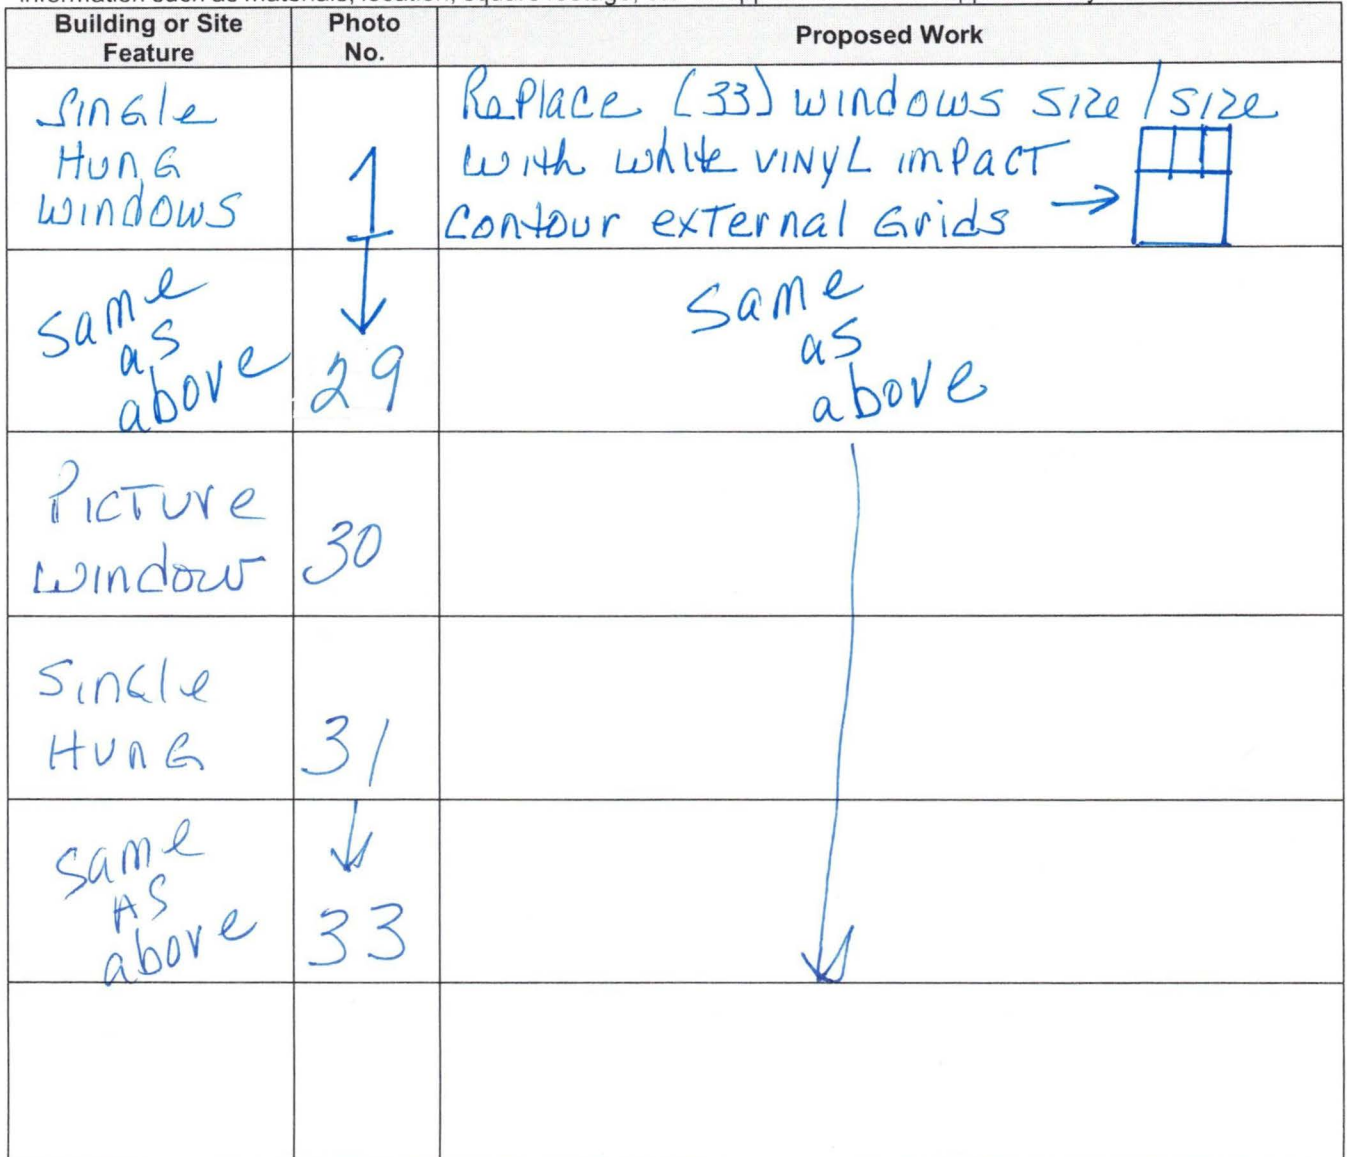 Building or Site
Feature
Photo
No.
Proposed Work
Single
Hung
Windows
1
Replace (33) windows size / size
with white vinyl impact
contour external Grids
same
as
above
29
same
as
above
Picture
window
30
Single
Hung
31
same
As
above
33